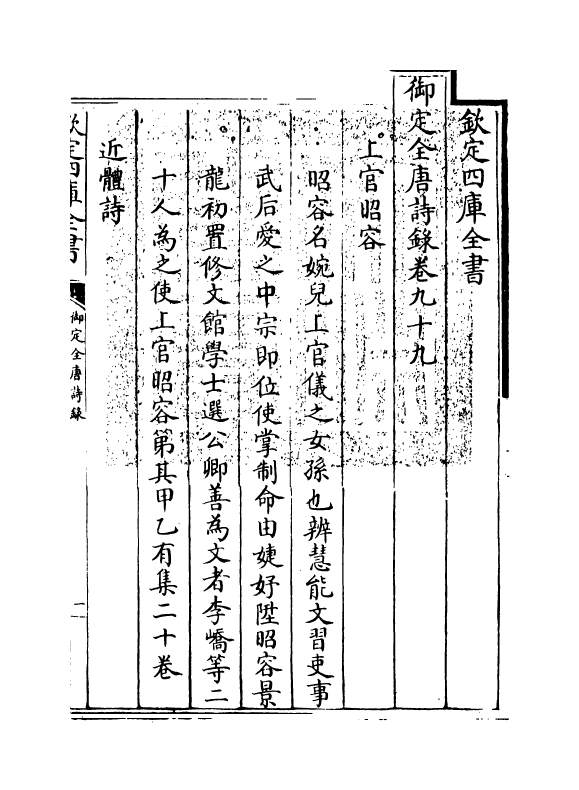 欽定四庫全書
御定全唐詩録卷九十九
上官昭容
昭容名婉兒上官儀之女孫也辨慧能文習吏事
武后愛之中宗即位使掌制命由婕妤陞昭容景
龍初置修文館學士選公卿善為文者李嶠等二
十人為之使上官昭容第其甲乙有集二十卷
近體詩
欽定四庫全書
御定全唐詩録